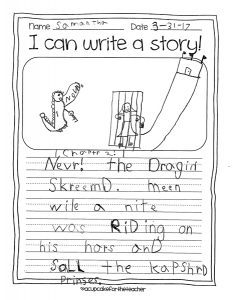 Name Samantha Date 3-31-17
I can write a story!
Nevr!
Chapter 2:
Nevr! the Dragin
SkreemD. meen
wile a nite
was RiDing on
his hors anD
SoLL the kapshrd
Prinses.
©acupcakefortheteacher